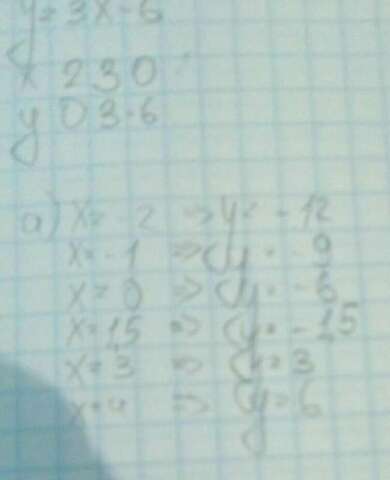 y = 3x - 6
x 2 3 0
y 0 3 -6
a) x = -2 => y = -12
x = -1 => y = -9
x = 0 => y = -6
x = 1,5 => y = -1,5
x = 3 => y = 3
x = 4 => y = 6